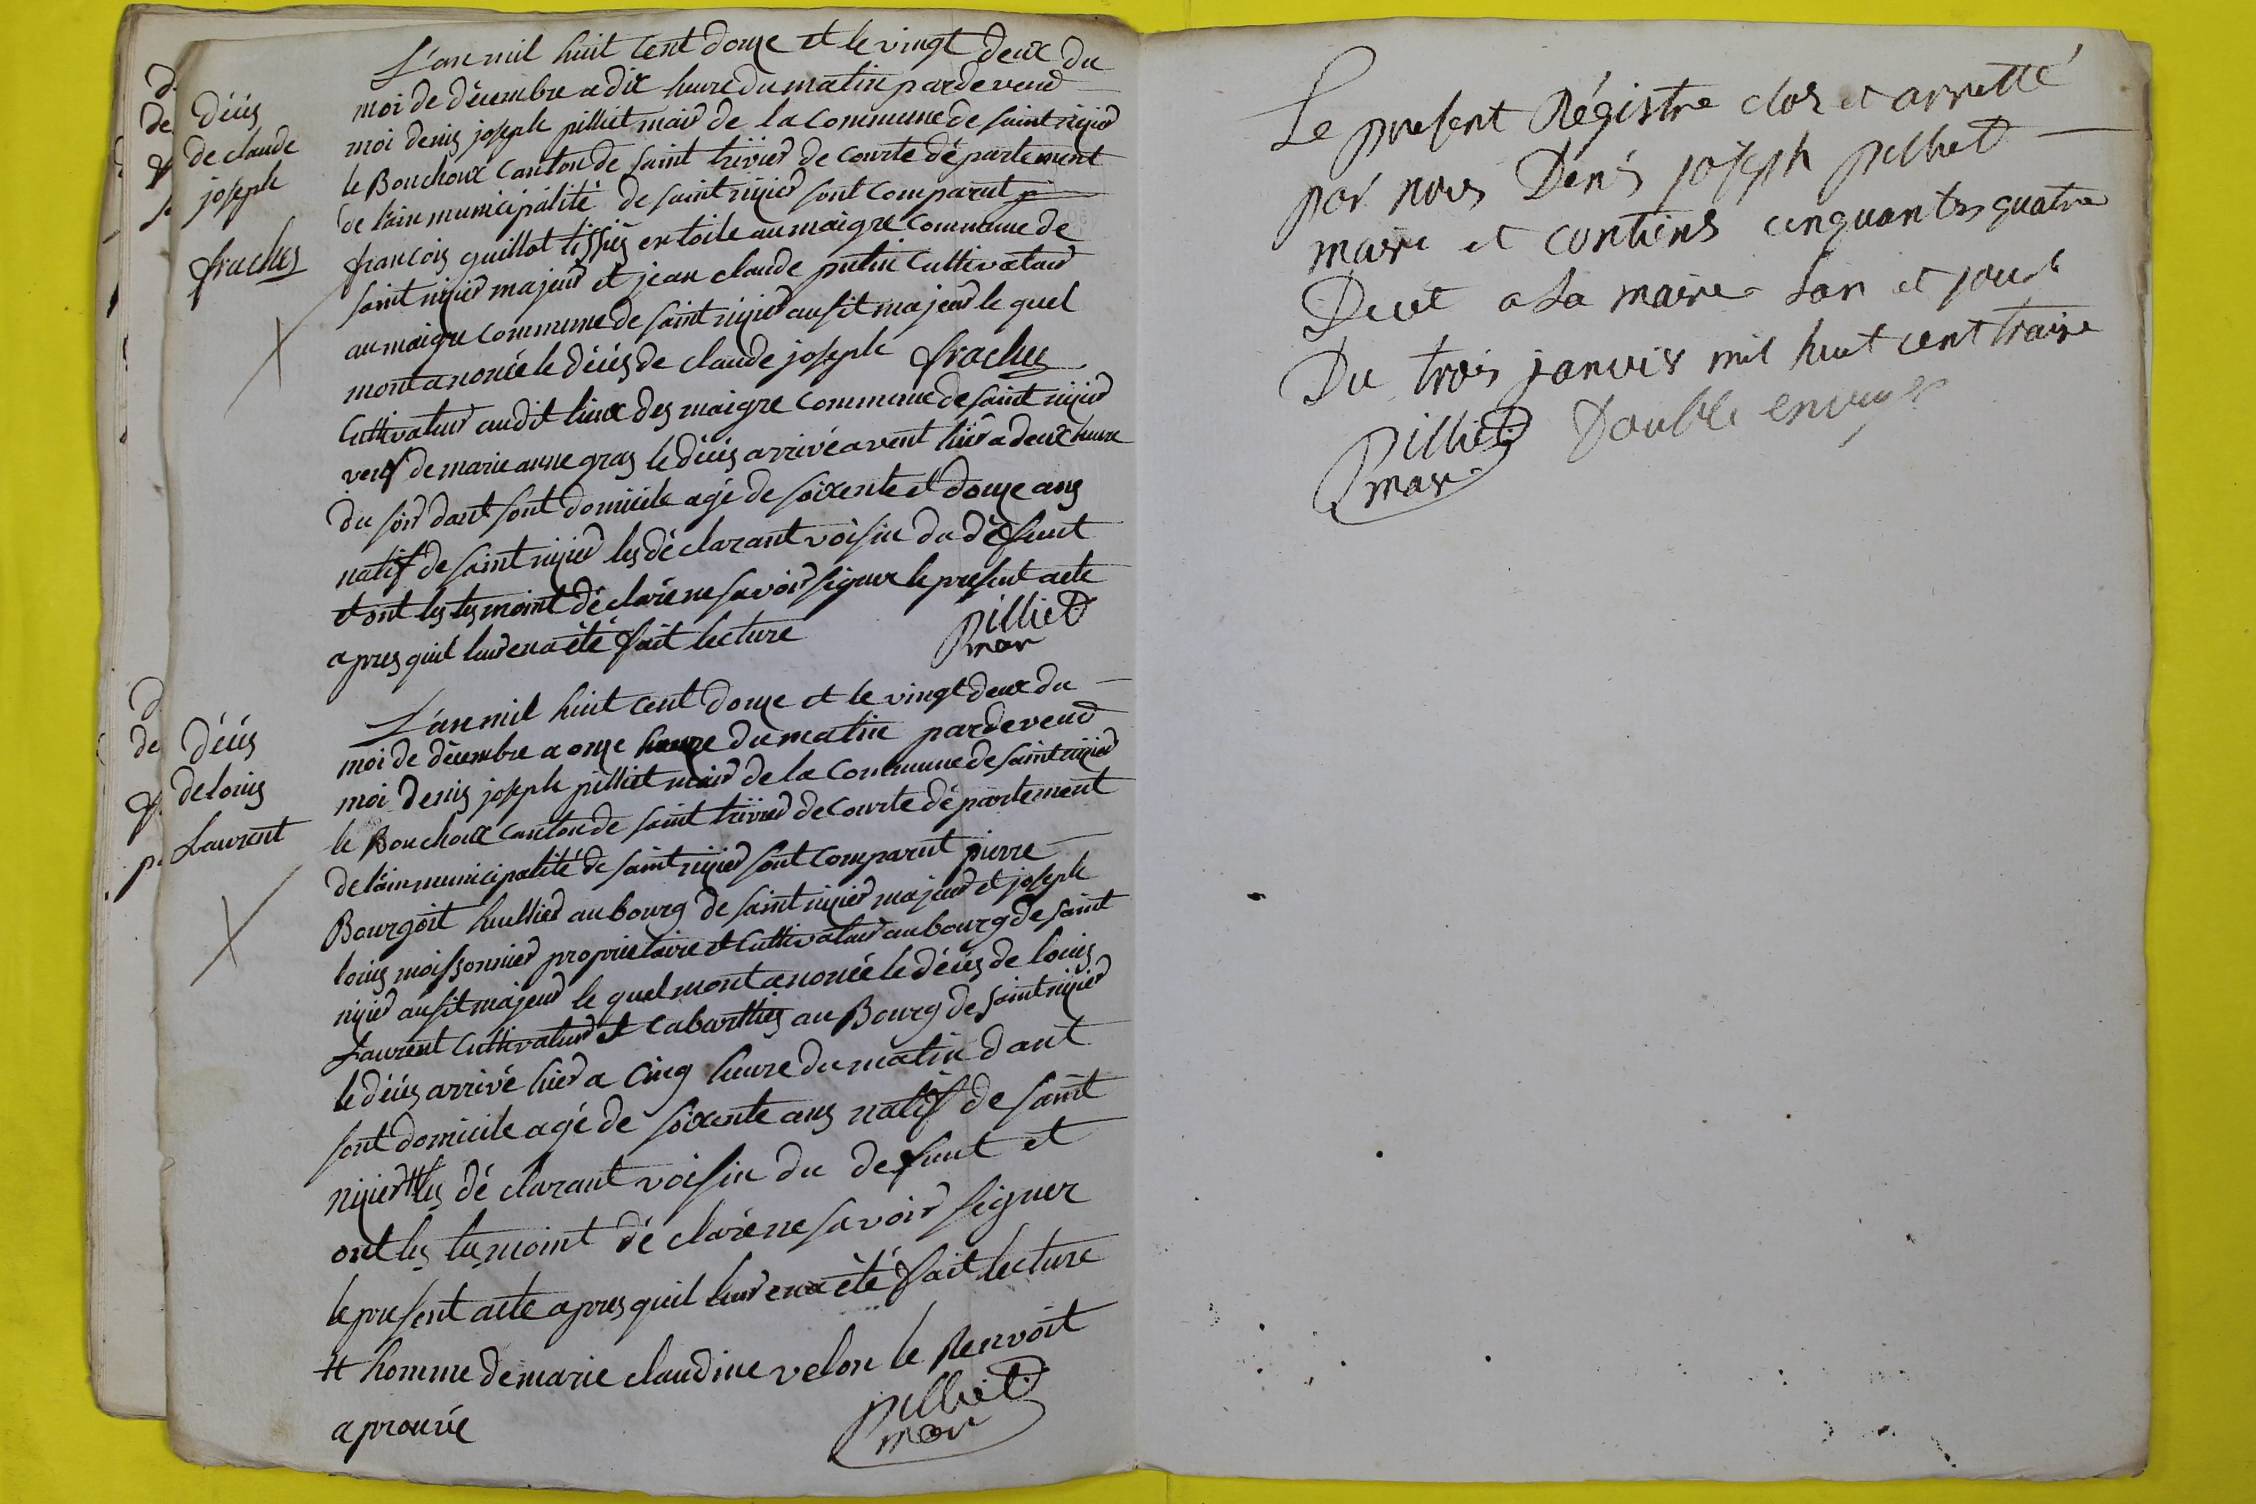 décès
de claude
joseph
frachez
L'an mil huit cent douze et le vingt deux du
moi de décembre a dix heure du matin pardeveud
moi denis joseph pilliet maire de la Commune de saint nizier
le Bouchoux Canton de saint trivier de Courte département
de l'ain municipalité de saint nizier sont comparut
françois guillot tissier en toile au maigre Commune de
saint nizier majeur et jean claude putin Cultivateur
au maigre commune de saint nizier ausit majeur le quel
mont anoncé le décès de claude joseph frachez
Cultivateur audit lieux des maigre Commune de saint nizier
veuf de marie anne gras le décès arrivé avent hier a deux heure
du soir dant sont domicile agé de soixente et douze ans
natif de saint nizier les déclarant voisin du défunt
et ont les tesmoint déclaré ne savoir signer le present acte
apres quil leur en a été fait lecture
pilliet
mar
décès
de louis
Laurent
L'an mil huit cent douze et le vingt deux du
moi de décembre a onze heure du matin pardeveud
moi denis joseph pilliet maire de la Commune de saint nizier
le Bouchoux Canton de saint trivier de Courte département
de l'ain municipalité de saint nizier sont comparut pierre
Bourgoit huillier au bourg de saint nizier majeur et joseph
louis moissonnier proprietaire et Cultivateur au bourg de saint
nizier ausit majeur le quel mont anoncé le décès de louis
Laurent Cultivateur et Cabarttier au Bourg de saint nizier
le décès arrivé hier a Cinq heure du matin dant
sont domicile agé de soixente ans natif de saint
nizier # les déclarant voisin du defunt et
ont les tesmoint déclaré ne savoir signer
le present acte apres quil leur en a été fait lecture
# homme de marie claudine velon le Renvoit
aprouvé
pilliet
mar
Le present Régistre clos et arretté
par nous Denis joseph pilliet
maire et contiens cinquantes quatre
Decet a la mairie Lan et jour
Du trois janvier mil huit cent traize
Pilliet
mar
Double envoyé